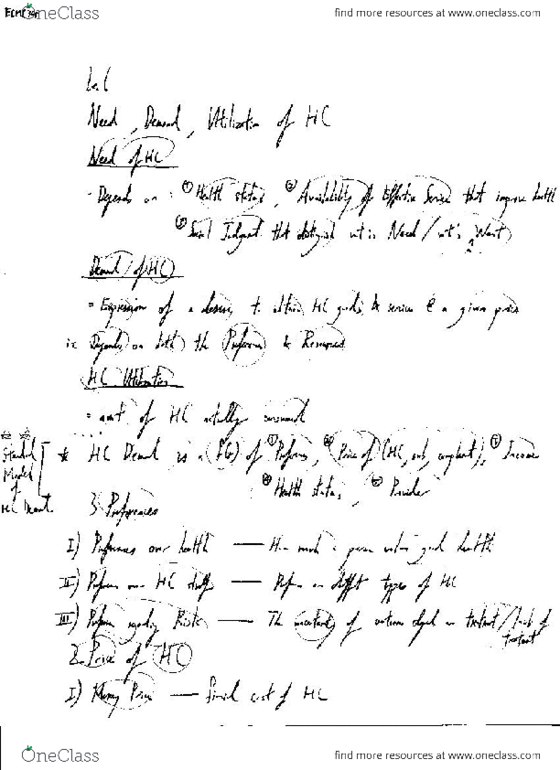 OneClass
find more resources at www.oneclass.com
Lec
Need, Demand, Utilization of HC
Need of HC
- Depends on : ① Health status, ② Availability of Effective Service that improve health
③ Social Judgment that distinguish wt is Need / wt is Want
Demand of HC
= Expression of a desire to obtain HC goods & service @ a given price
Depends on both the Preferences & Resources
HC Utilization
= amt of HC actually consumed
Standard
Model
of
HC Demand
* HC Demand is a f(x) of ① Preferences, ② Price of (HC, sub, complement), ③ Income
④ Health status, ⑤ Provider
Preferences
I) Preferences over health — How much a person values good health
II) Preferences over HC — Preferences on different types of HC
III) Preferences regarding Risk — The uncertainty of outcome on treatment / lack of
treatment
2. Price of HC
I) Money Price — final cost of HC
OneClass
find more resources at www.oneclass.com